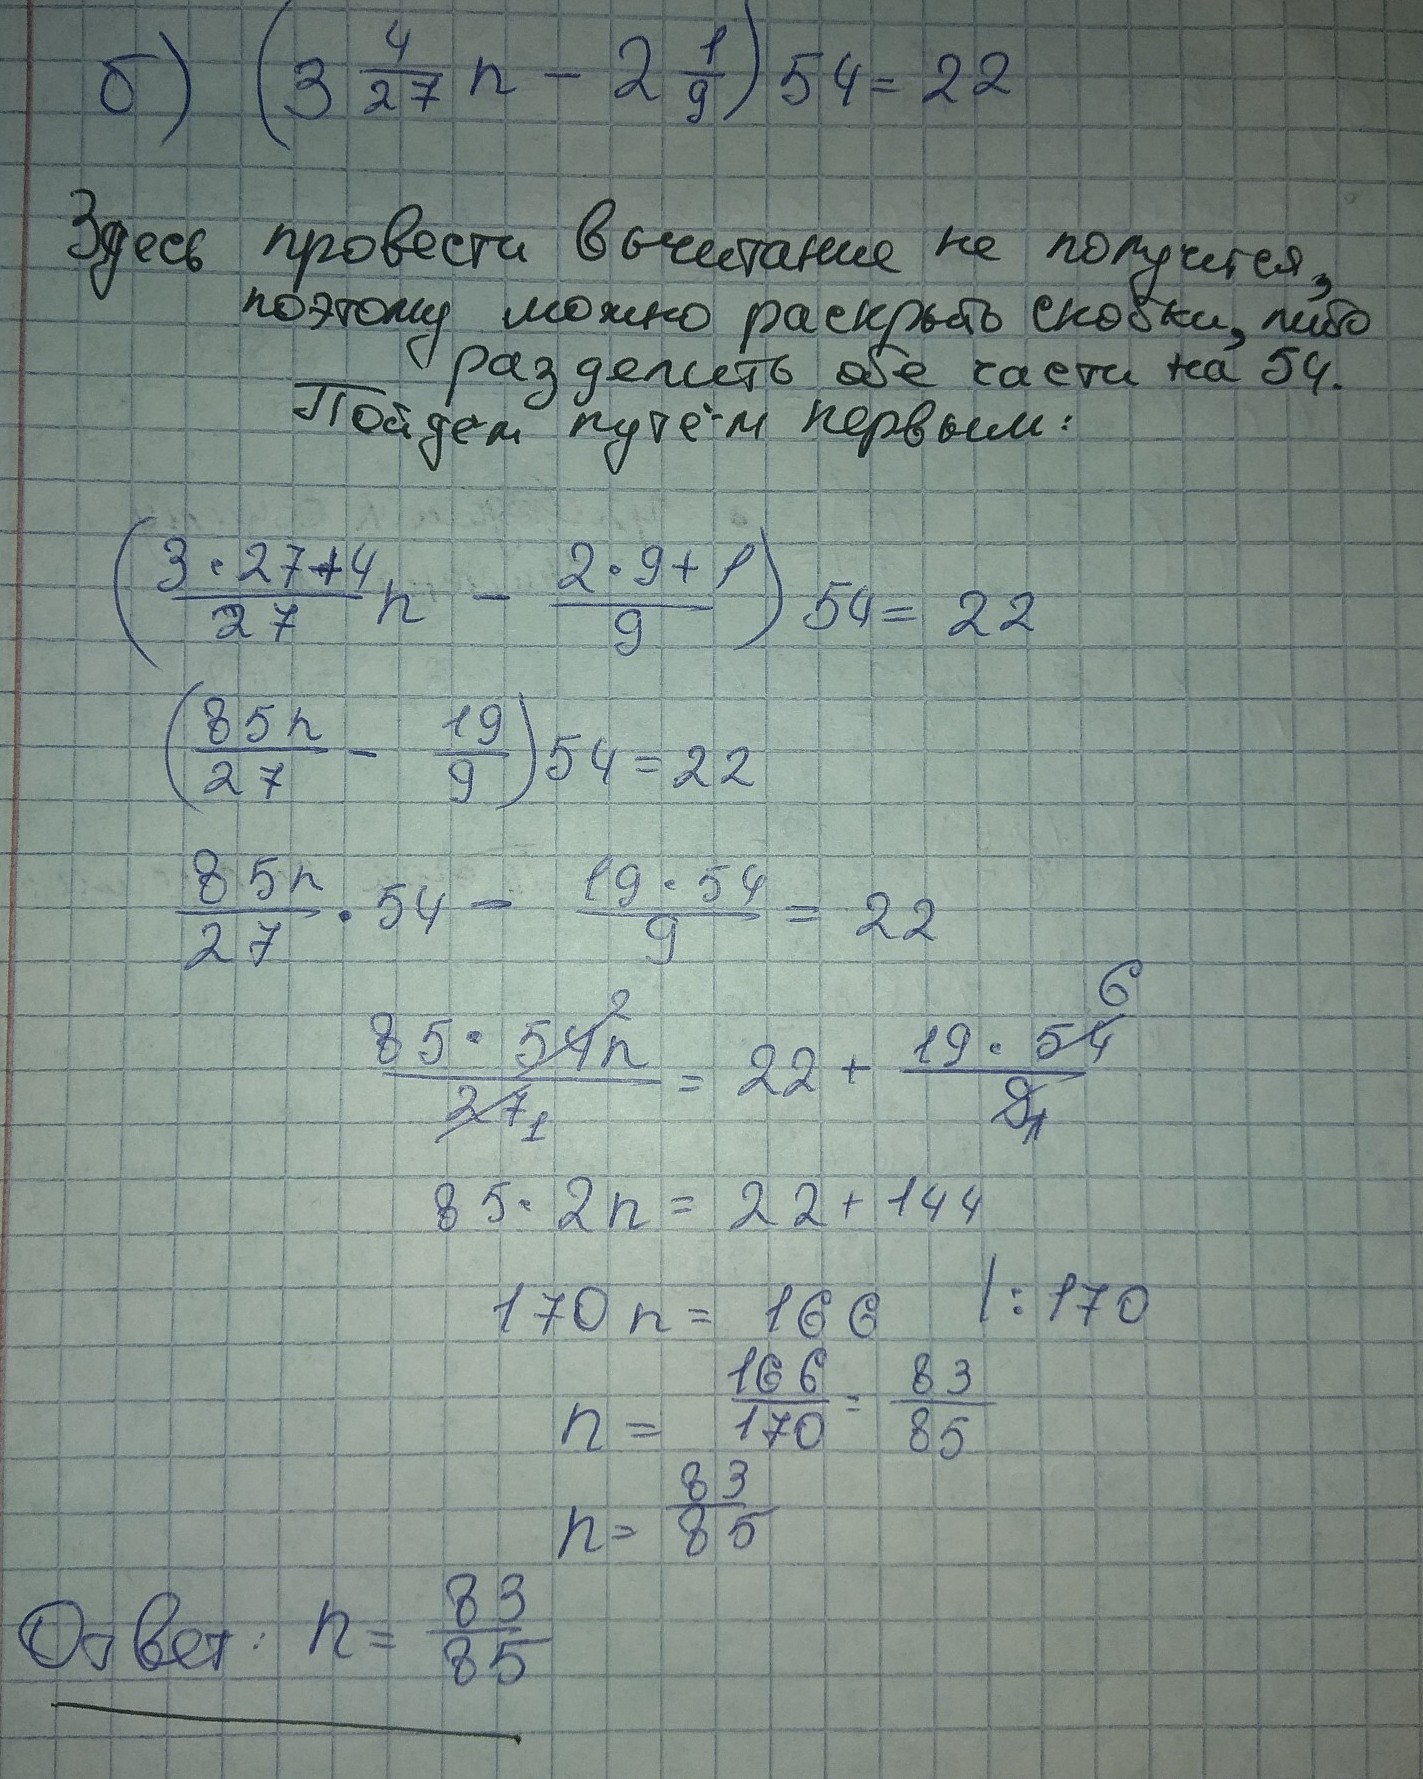 б) (3 4/27 n - 2 1/9) 54 = 22
Здесь провести вычитание не получится,
поэтому можно раскрыть скобки, либо
разделить обе части на 54.
Пойдём путём первым:
((3·27+4)/27 n - (2·9+1)/9) 54 = 22
(85n/27 - 19/9) 54 = 22
85n/27 · 54 - 19·54/9 = 22
85·54 2 n/27 1 = 22 + 19·54 6/9 1
85·2n = 22+144
170n = 166 |:170
n = 166/170 = 83/85
n = 83/85
Ответ: n = 83/85